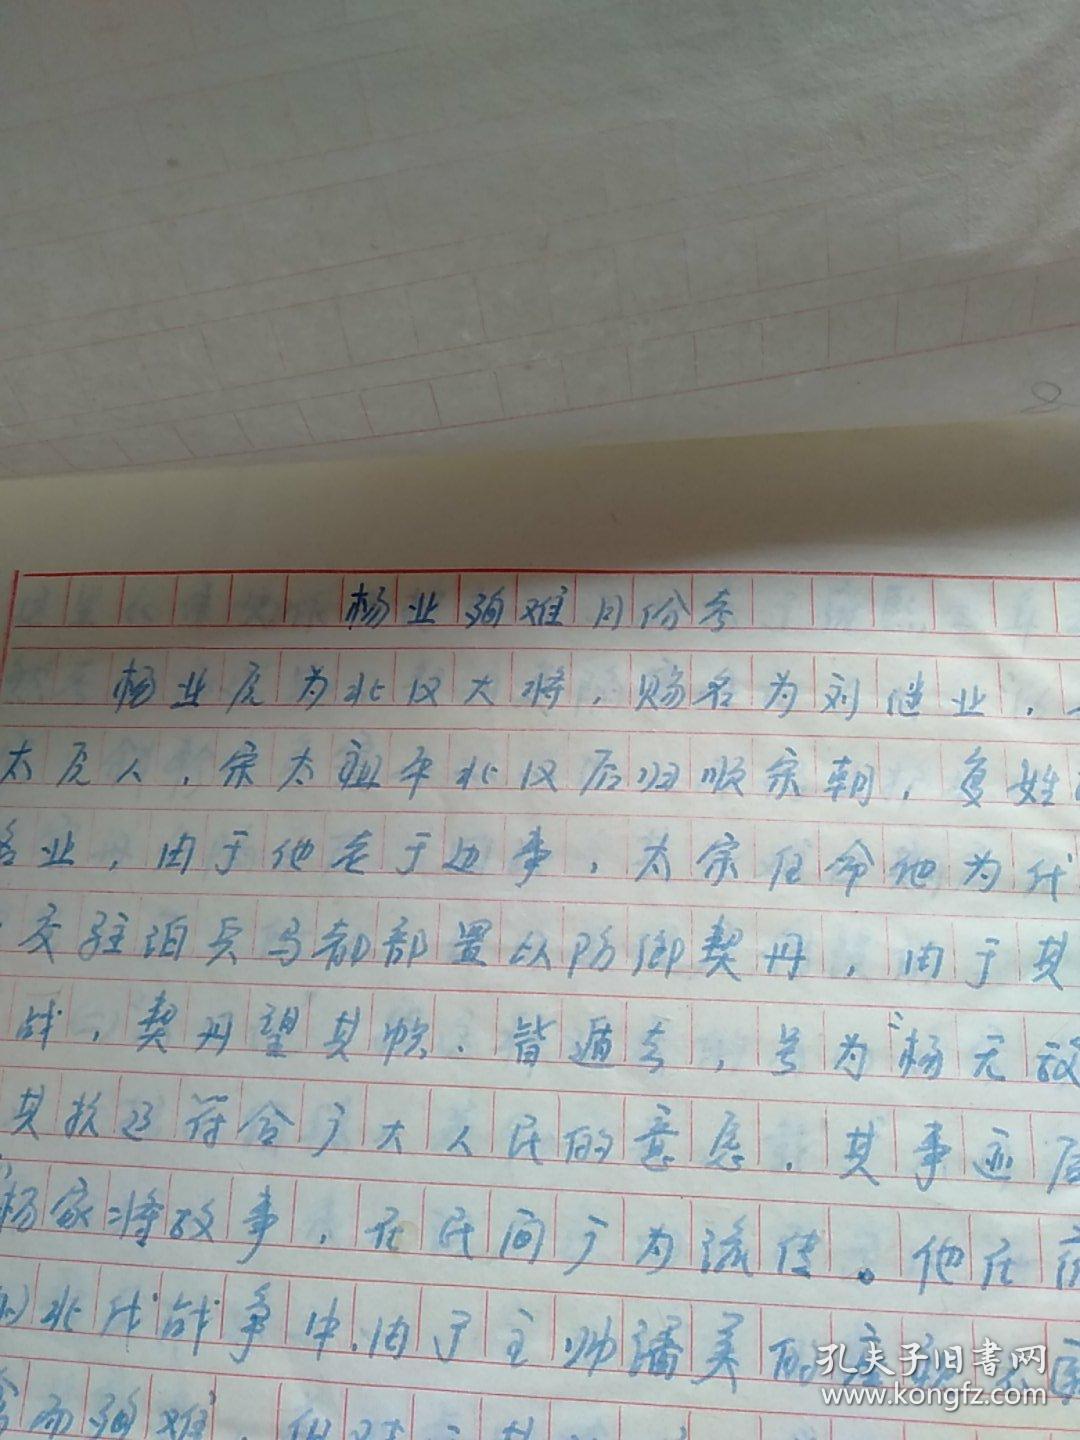 杨业殉难月份考
杨业原为北汉大将，赐名为刘继业，
太原人，宋太祖平北汉后归顺宗朝，复姓
名业，由于他老于边事，太宗任命他为代
交驻泊兵马都部署以防御契丹，由于其
战，契丹望其帜，皆遁去，号为“杨无敌
其抗辽符合广大人民的意愿，其事迹
杨家将故事，在民间广为流传。他在
的北伐战争中，由于主帅潘美的
而殉难，但
孔夫子旧书网
www.kongfz.com